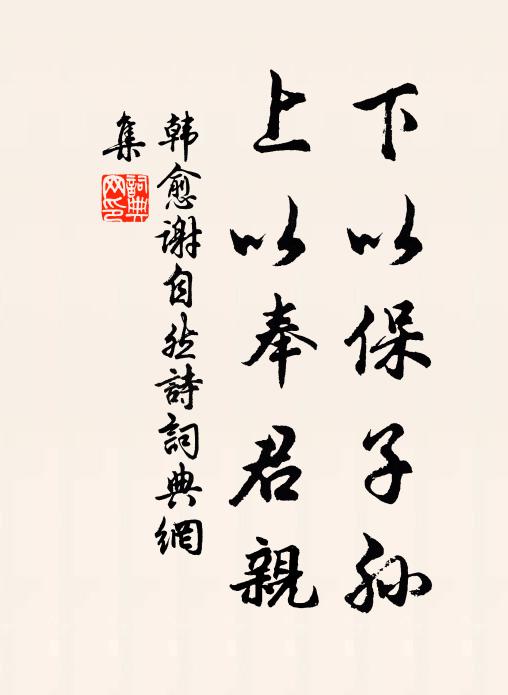 下以保子孫
上以奉君親
韓愈謝自然詩詞典網
集
詞典
網印